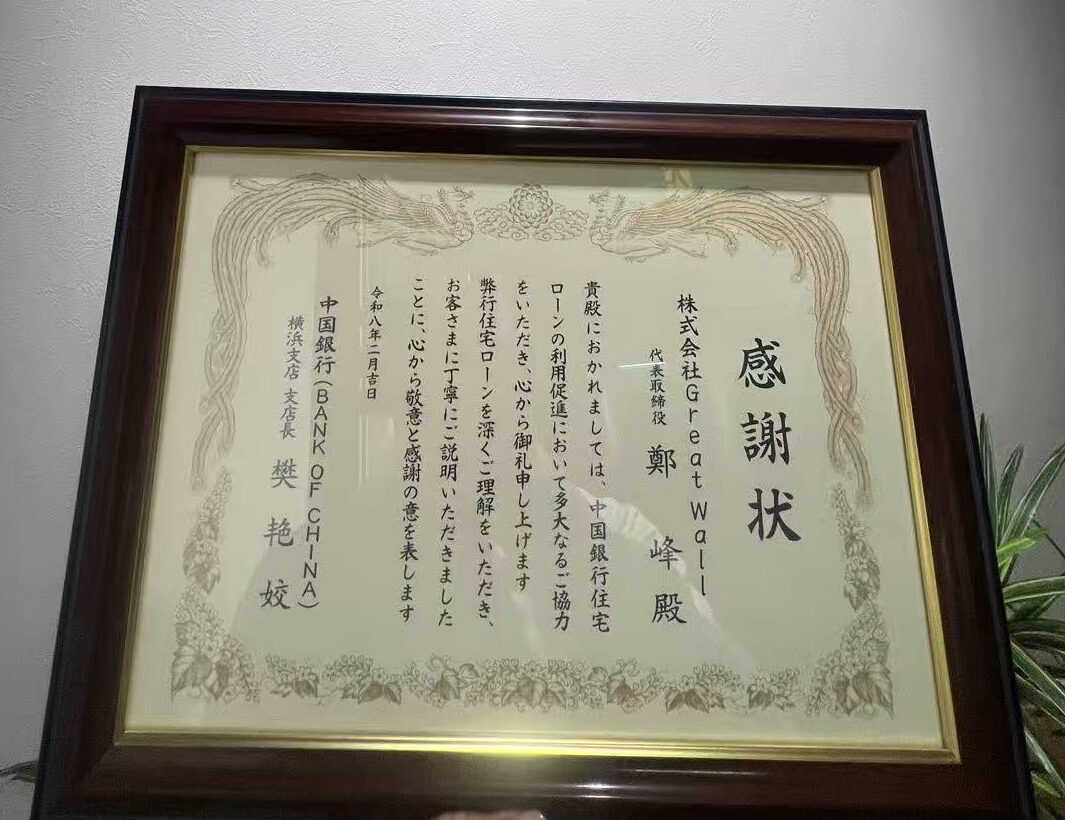 感謝状
株式会社Great Wall
代表取締役 鄭峰殿
貴殿におかれましては、中国銀行住宅
ローンの利用促進において多大なるご協力
をいただき、心から御礼申し上げます
弊行住宅ローンを深くご理解をいただき、
お客さまに丁寧にご説明いただきました
ことに、心から敬意と感謝の意を表します
令和八年二月吉日
中国銀行(BANK OF CHINA)
横浜支店 支店長 樊艳姣